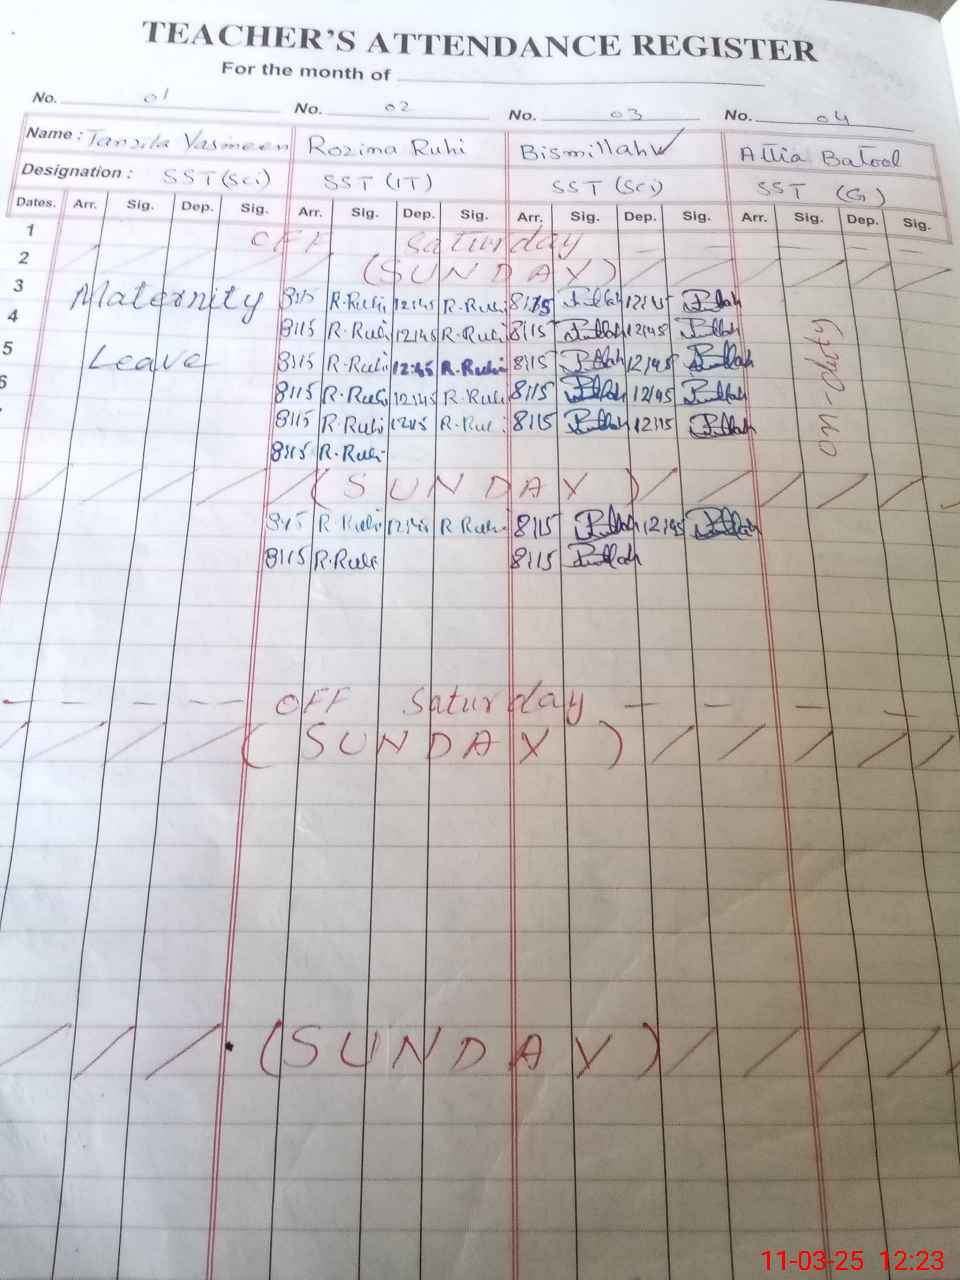 TEACHER'S ATTENDANCE REGISTER
For the month of
No. 01 No. 02 No. 03 No. 04
Name : Tanzila Yasmeen Rozina Ruhi Bismillah Attia Batool
Designation : SST (Sci) SST (IT) SST (Sci) SST (G)
Dates. Arr. Sig. Dep. Sig. Arr. Sig. Dep. Sig. Arr. Sig. Dep. Sig. Arr. Sig. Dep. Sig.
1 OFF Saturday
2 (SUNDAY)
3 Maternity 8:15 R.Ruhi 12:45 R.Ruhi 8:15 12:45
4 8:15 R.Ruhi 12:45 R.Ruhi 8:15 12:45
5 Leave 8:15 R.Ruhi 12:45 R.Ruhi 8:15 12:45
6 8:15 R.Ruhi 12:45 R.Ruhi 8:15 12:45
8:15 R.Ruhi R.Ruhi 8:15
8:15 R.Ruhi
(SUNDAY)
8:15 R.Ruhi 12:45 R.Ruhi 8:15 12:45
8:15 R.Ruhi 8:15
OFF Saturday
(SUNDAY)
(SUNDAY)
11-03-25 12:23